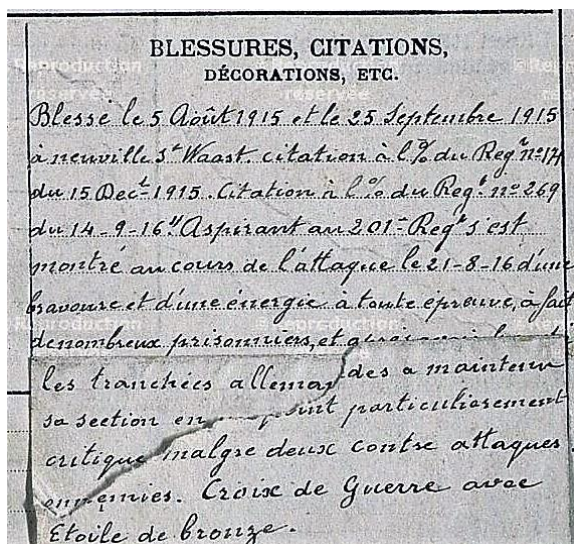 BLESSURES, CITATIONS,
DÉCORATIONS, ETC.
Blessé le 5 Août 1915 et le 25 Septembre 1915
à neuville St Waast. citation à l'% du Regt no 17
du 15 Dect 1915. Citation à l'% du Regt no 269
du 14-9-16 "Aspirant au 201e Regt s'est
montré au cours de l'attaque le 21-8-16 d'une
bravoure et d'une énergie à toute épreuve, à fait
de nombreux prisonniers, et
les tranchées allemandes a maintenu
sa section en point particulièrement
critique malgré deux contre attaques
ennemies. Croix de Guerre avec
Etoile de bronze.